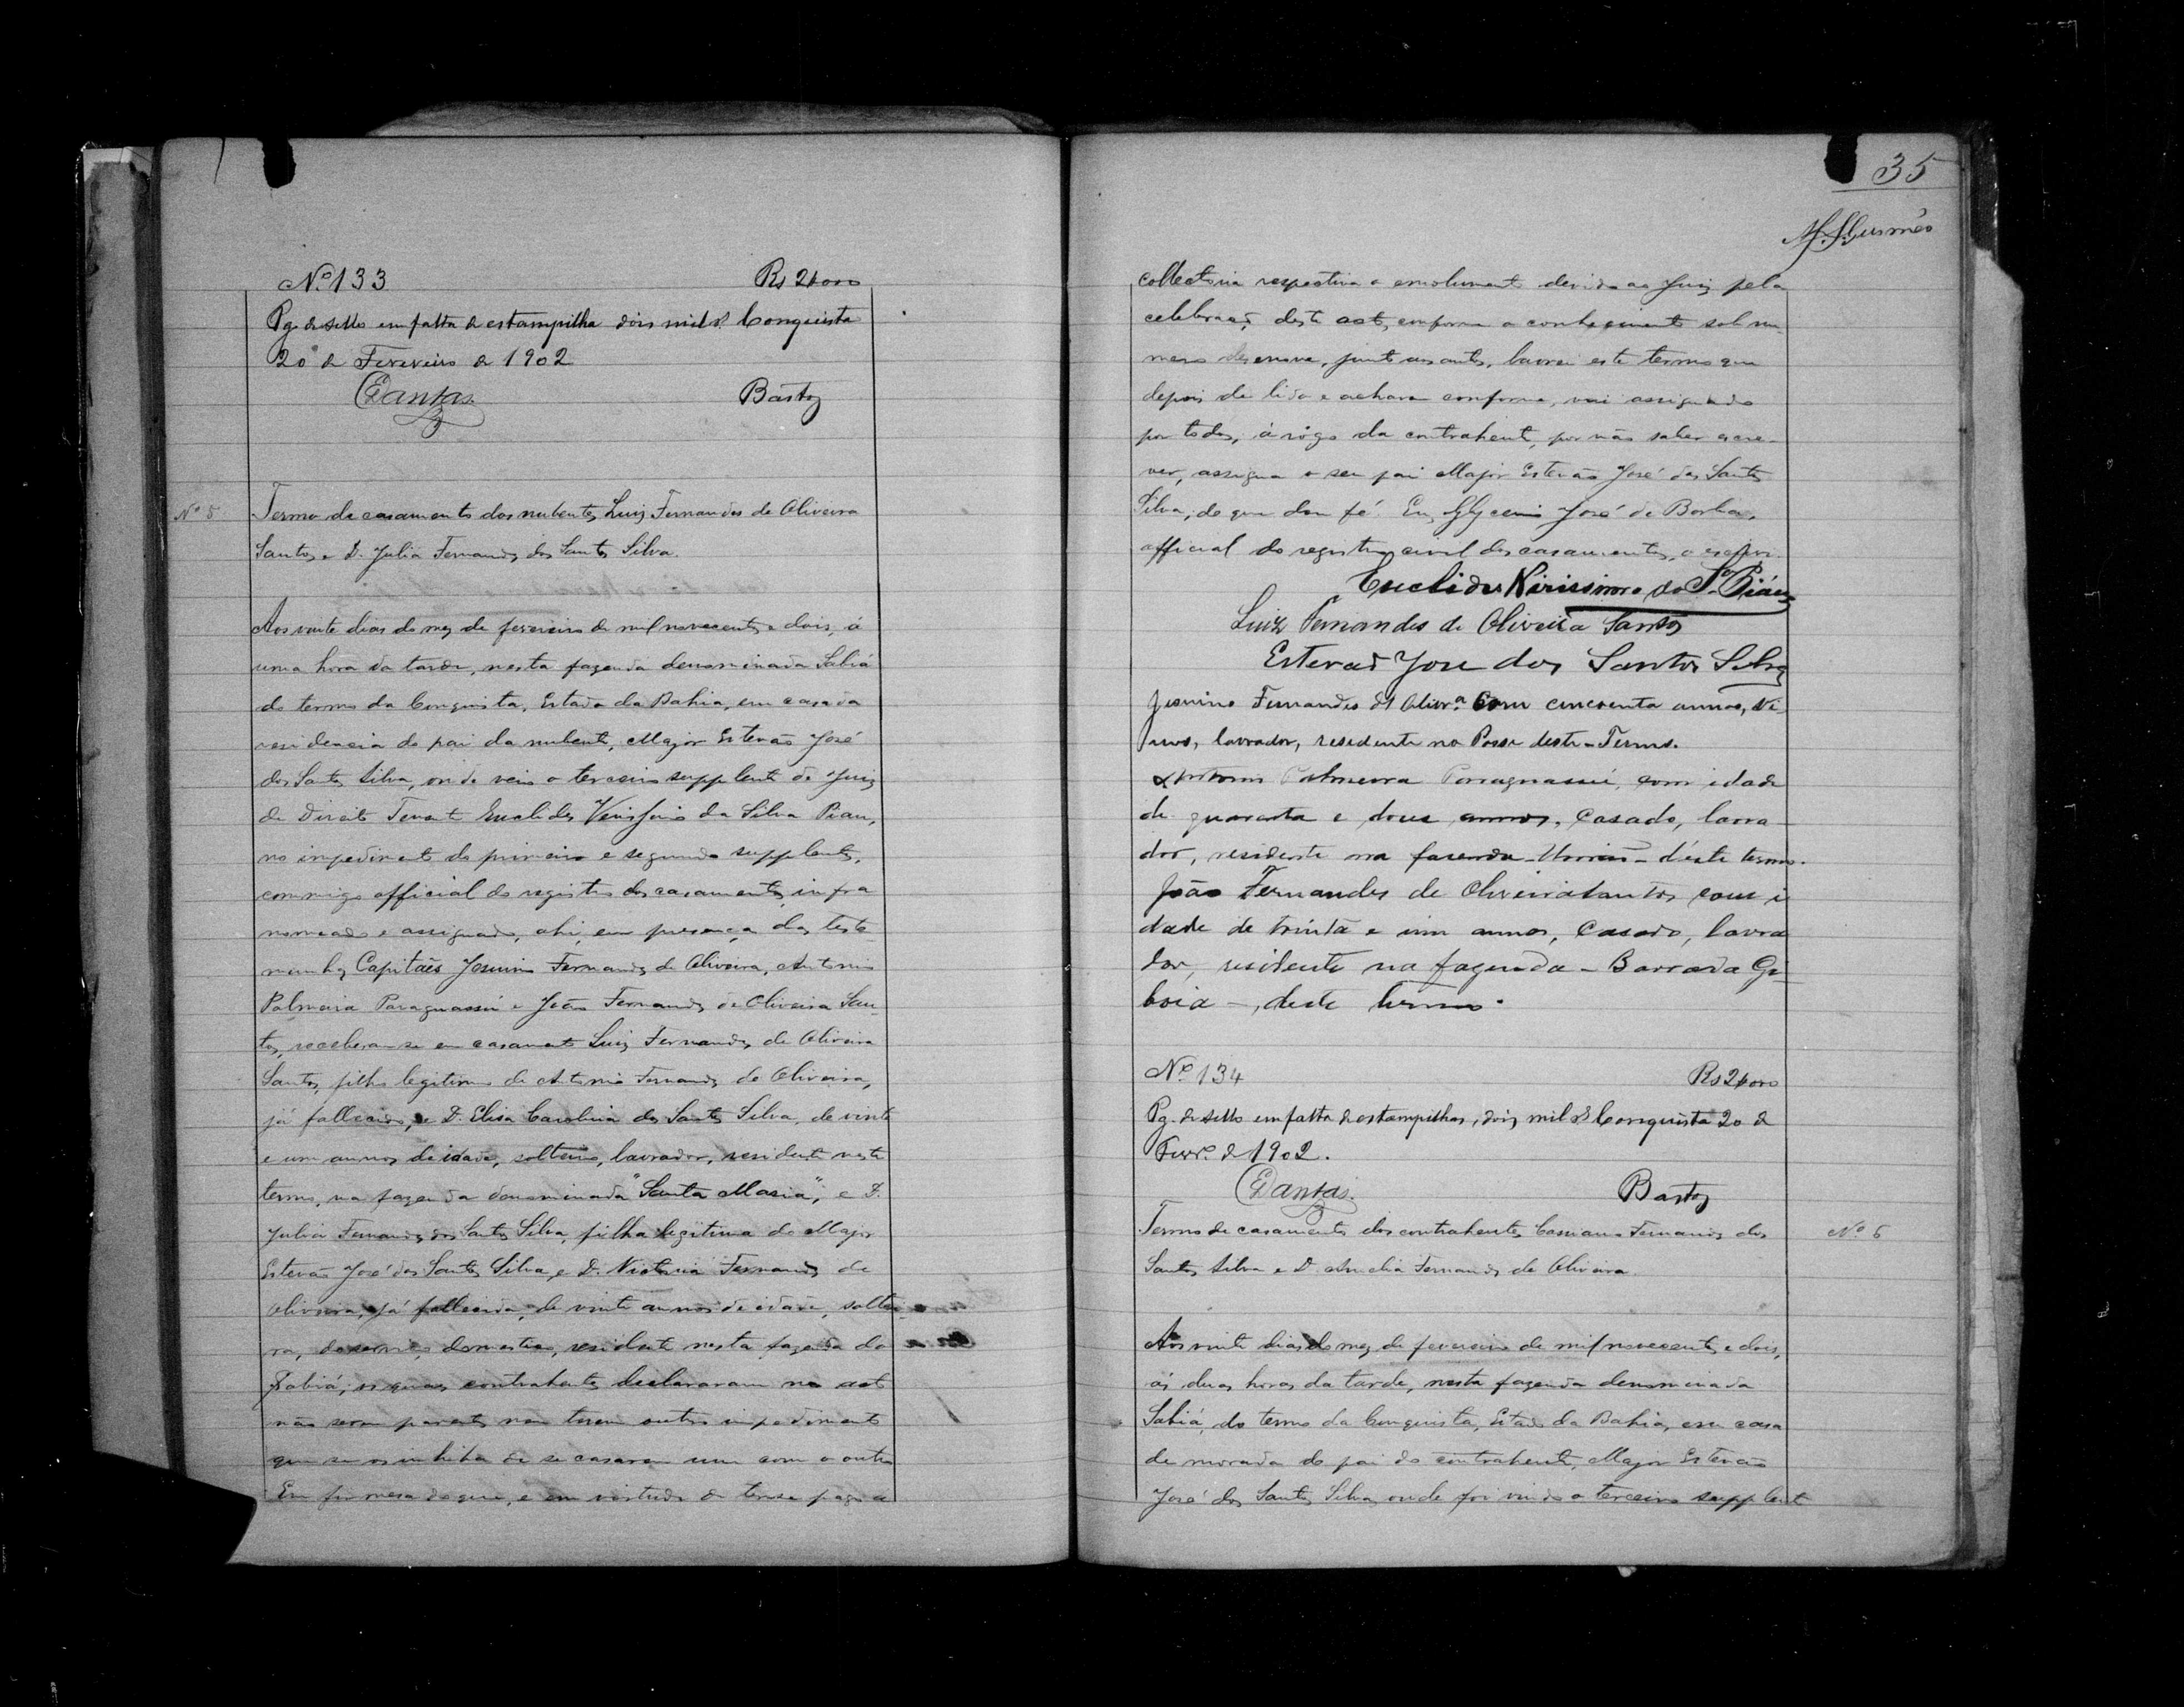 Nº 133 Rs 2$000
Pg. de sello em falta de estampilha dois mil rs. Conquista
20 de Fevereiro de 1902
CDantas. Bastos
Nº 5 Termo de casamento dos nubentes Luiz Fernandes de Oliveira
Santos e D. Julia Fernandes dos Santos Silva.
Aos vinte dias do mez de fevereiro de mil novecentos e dois, á
uma hora da tarde, nesta fazenda denominada Sabiá
do termo da Conquista, Estado da Bahia, em casa da
residencia do pai da nubente, Major Estevão José
dos Santos Silva, onde veio o terceiro supplente do Juiz
de Direito Tenente Euclides Verissimo da Silva Piau,
no impedimento do primeiro e segundo supplentes,
commigo official do registro dos casamentos, infra
nomeado e assignado, ahi, em presença das teste-
munhas Capitães Jesuino Fernandes de Oliveira, Antonio
Palmeira Paraguassú e João Fernandes de Oliveira San-
tos, receberam-se em casamento Luiz Fernandes de Oliveira
Santos, filho legitimo de Antonio Fernandes de Oliveira,
já fallecido, e D. Elisa Carolina dos Santos Silva, de vinte
e um annos de idade, solteiro, lavrador, residente neste
termo, na fazenda denominada "Santa Maria", e D.
Julia Fernandes dos Santos Silva, filha legitima do Major
Estevão José dos Santos Silva, e D. Victoria Fernandes de
Oliveira, já fallecida, de vinte annos de idade, soltei-
ra, de serviço domestico, residente nesta fazenda do
Sabiá; os quaes contrahentes declararam no acto
não serem parentes nem terem outro impedimento
que os inhiba de se casarem um com o outro
Em firmesa do que, e em virtude de ter-se pago a
35
collectoria respectiva o emolumento devido ao Juiz pela
celebração deste acto, conforme o conhecimento sob nu-
mero desenove, junto aos autos, lavrei este termo que
depois de lido e acharem conforme, vai assignado
por todos, á rogo da contrahente, por não saber escre-
ver, assigna o seu pai Major Estevão José dos Santos
Silva; do que dou fé. Eu, Glycerio José de Borba,
official do registro civil dos casamentos, o escrevi.
Euclides Virissimo da Sª Piáu
Luiz Fernandes de Oliveira Santos
Estevaõ Jose dos Santos Silva
Jesuino Fernandes de Olivrª Com cincoenta annos, Vi-
uvo, lavrador, residente no Posse deste Termo.
Antonio Palmeira Paraguassú, com idade
de quarenta e dous annos, Casado, lavra-
dor, residente na fazenda d'este termo.
João Fernandes de Oliveira Santos, com i
dade de trinta e um annos, Casado, lavra
dor, residente na fazenda - Barra da Gi-
boia -, deste termo.
Nº 134 Rs 2$000
Pg. de sello em falta de estampilhas, dois mil rs. Conquista 20 de
Fevrº. de 1902.
CDantas. Bastos
Termo de casamento dos contrahentes Fernandes dos Nº 6
Santos Silva e D. Amelia Fernandes de Oliveira.
Aos vinte dias do mez de fevereiro de mil novecentos e dois,
ás duas horas da tarde, nesta fazenda denominada
Sabiá, do termo da Conquista, Estado da Bahia, em casa
de morada do pai do contrahente, Major Estevão
José dos Santos Silva, onde foi vindo o terceiro supplente